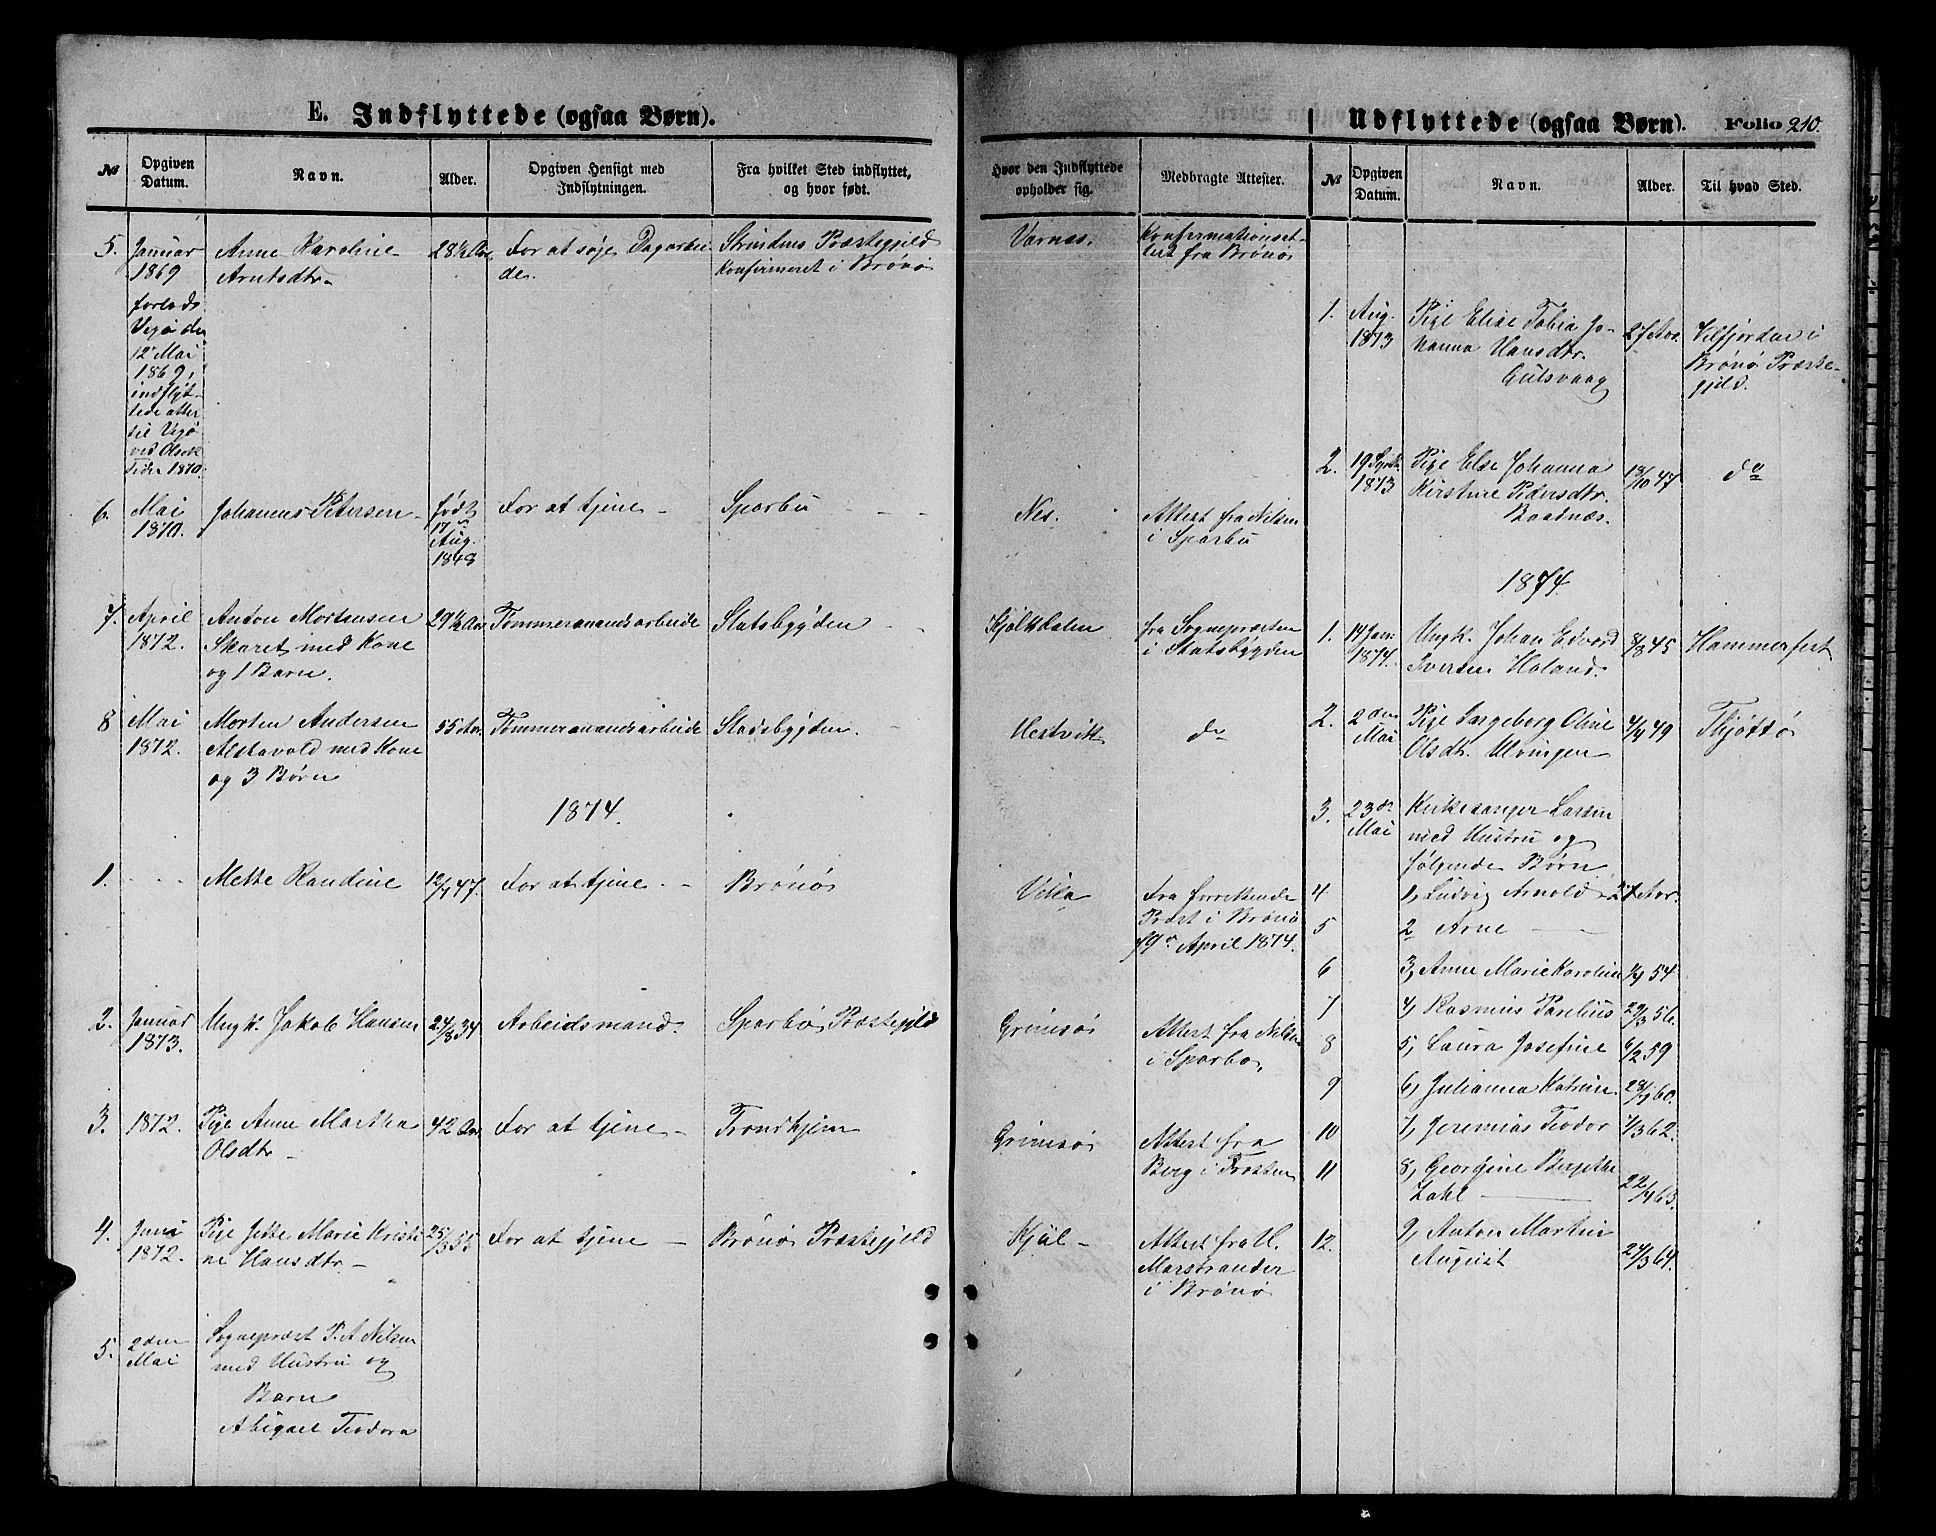 E. Indflyttede (ogsaa Børn).
№ Opgiven Datum. Navn. Alder. Opgiven Hensigt med Indflytningen. Fra hvilket Sted indflyttet, og hvor født.
5. Januar Anne Karoline 28½ Aar For at søje Dagarbei- Strindens Præstegjeld
1869 Arntsdtr. de. Konfirmeret i Brønø
forlods
Vegø den
12 Mai
1869,
indflyt-
tede atter
til Vegø
ved Olsok
Tider 1870.
6. Mai Johannes Petersen født For at tjene Sparbu
1870. 17
Aug.
1848
7. April Anton Mortensen 29½ Aar Tømmermandsarbeide Statsbygden
1872. Skaret med Kone
og 1 Barn.
8 Mai Morten Andersen 55 Aar Tømmermandsarbeide Stadsbygden.
1872. med Kone
og 3 Børn
1874.
1. Mette Randine 12/1 47. For at tjene Brønø
2. Januar Ungk. Jakob Hansen 24/8 34 Arbeidsmand. Sparbo Præstegjeld
1873.
3. 1872. Pige Anne Martha 42 Aar For at tjene Trondhjem
Olsdtr
4. Juni Pige Jette Marie Kristi- 25/3 55 For at tjene Brønø Præstegjeld
1872. ne Hansdtr
5. 2den Sognepræst P. A. Nilsen
Mai med Hustru og
Barn
Abigael Teodora
Udflyttede (ogsaa Børn). Folio 210.
Hvor den Indflyttede opholder sig. Medbragte Attester. № Opgiven Datum. Navn. Alder. Til hvad Sted.
Vernes. Konfirmationsat-
test fra Brønø
1. Aug. Pige Elise Tobia Jo- 27 Aar. Vilfjorden i
1873 hanna Hansdtr. Brønø Præste-
Gulsvaag gjeld.
2. 19 Septb. Pige Else Johanna 18/10 47 do
1873 Kirstine Pedersdtr.
Baadnæs.
Nes. Attest fra Nilsen
i Sparbu
1874.
fra Sognepræsten 1. 14 Jan. Ungk. Johan Edvard 8/8 45 Hammerfest
i Statsbygden 1874. Iversen Haland.
Hestvitt do 2. 2den Pige Ingeborg Oline 4/4 49 Thjøttø
Mai Olsdtr. Ulvingen
3. 23de Kirkesanger Larsen
Mai med Hustru og
følgende Børn
Fra forrettende 4 1, Ludvig Arnold 21 Aar.
Præst i Brønø 5 2 Arne
19de April 1874.
6 3, Anne Marie Karoline 54
7 4, Rasmus Parelius 29/3 56.
Grimsø Attest fra Nilsen 8 5, Laura Josefine 6/2 59
i Sparbo,
9 6, Julianna Katrine 28/1 60.
Grimsø Attest fra 10 7, Jeremias Teodor 7/3 62.
Berg i Frosten 11 8, Georgine Bergithe
Zahl 22/4 63.
Kjul Attest fra U. 12. 9, Anton Martin
Marstrander August 24/3 64.
i Brønø